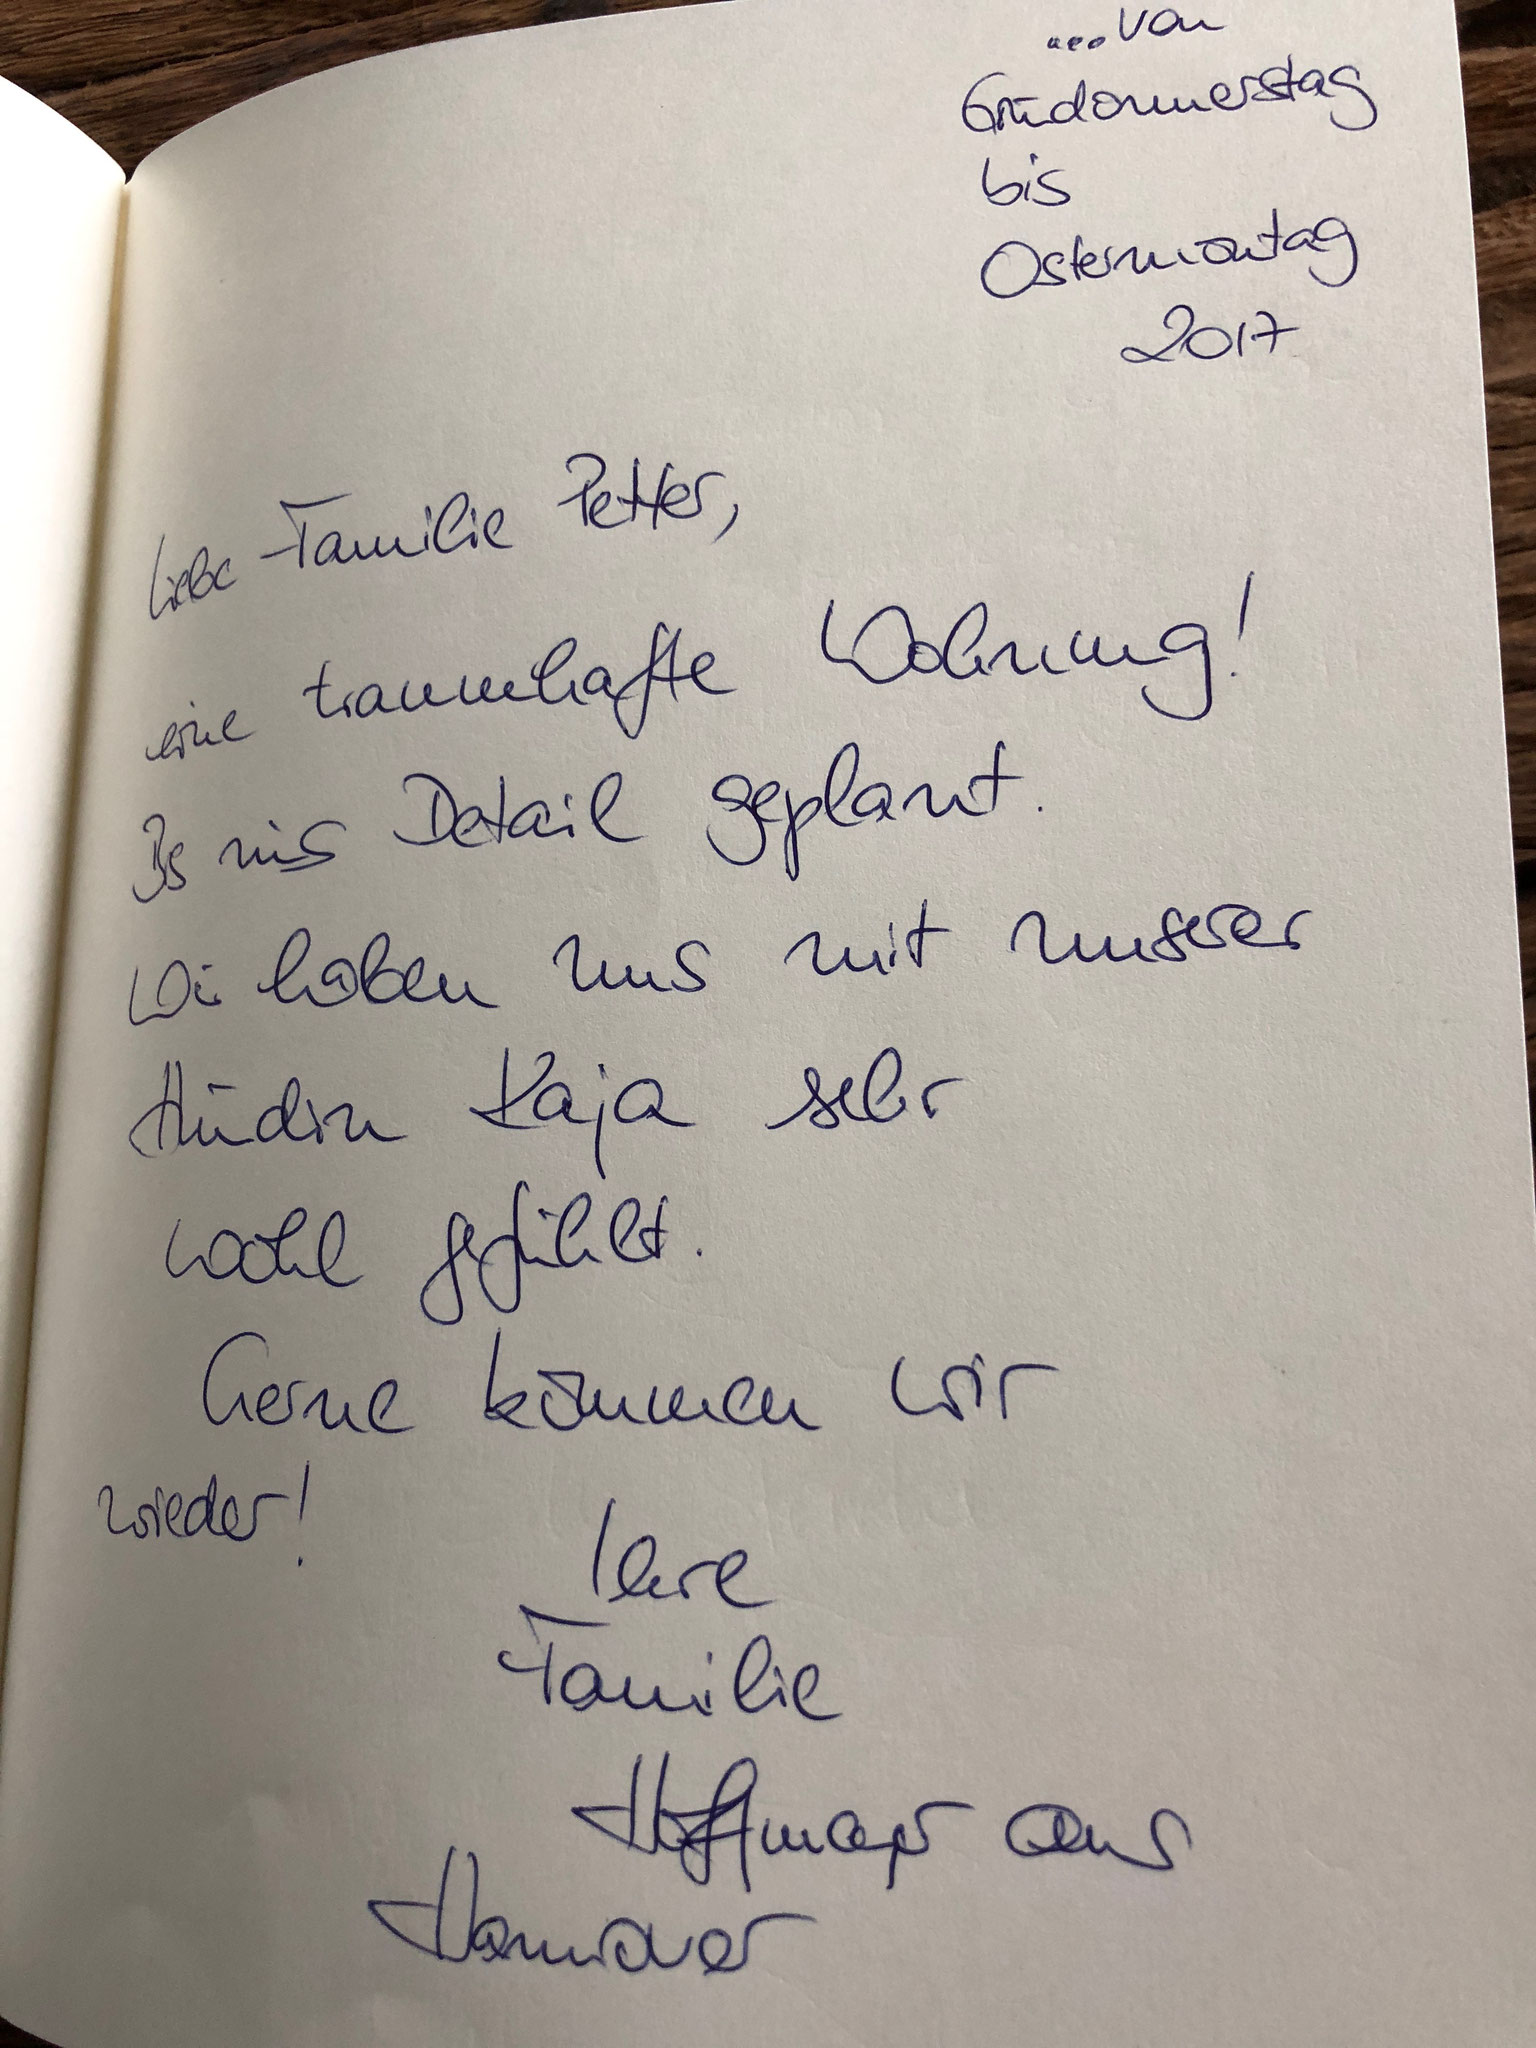 ...von
Gründonnerstag
bis
Ostermontag
2017
Liebe Familie Petter,
eine traumhafte Wohnung!
Bis ins Detail geplant.
Wir haben uns mit unserer
Hündin Kaja sehr
wohl gefühlt.
Gerne kommen wir
wieder!
Ihre
Familie
aus
Hannover